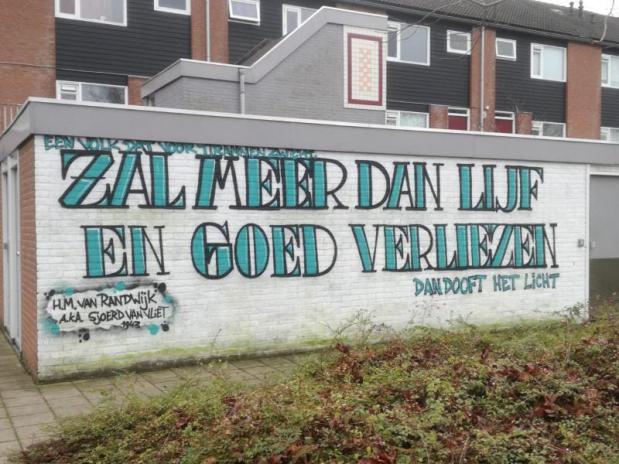 EEN VOLK DAT VOOR TIRANNEN ZWICHT
ZAL MEER DAN LIJF
EN GOED VERLIEZEN
DAN DOOFT HET LICHT
H.M. VAN RANDWIJK
A.K.A. SJOERD VAN VLIET
1943